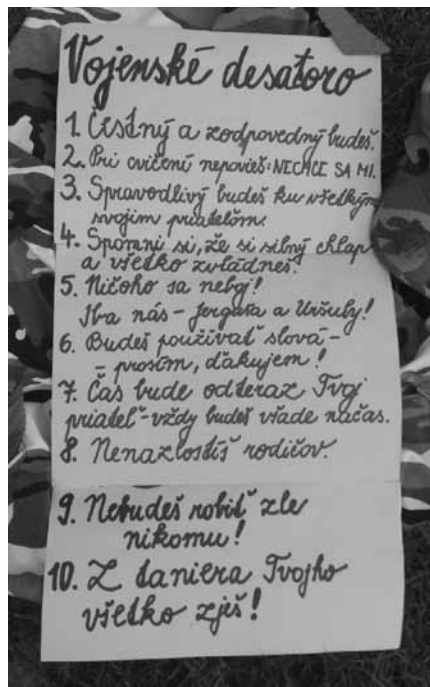 Vojenské desatoro
1. Čestný a zodpovedný budeš.
2. Pri cvičení nepovieš: NECHCE SA MI.
3. Spravodlivý budeš ku všetkým
svojim priateľom.
4. Spomni si, že si silný chlap
a všetko zvládneš.
5. Ničoho sa neboj!
Iba nás - Jergaša a Uršuly!
6. Budeš používať slová -
- prosím, ďakujem!
7. Čas bude odteraz Tvoj
priateľ - vždy budeš všade načas.
8. Nenazlostíš rodičov.
9. Nebudeš robiť zle
nikomu!
10. Z taniera Tvojho
všetko zješ!